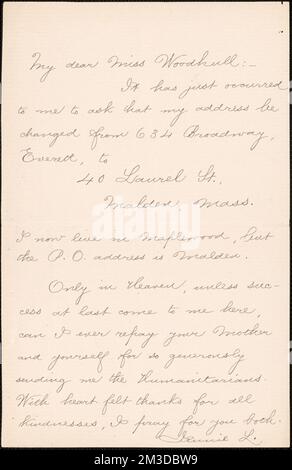 My dear Miss Woodhull:-
It has just occurred
to me to ask that my address be
changed from 634 Broadway,
Everett, to
40 Laurel St.,
Malden, Mass.
I now live in Maplewood, but
the P.O. address is Malden.
Only in Heaven, unless suc-
cess at last come to me here,
can I ever repay your Mother
and yourself for so generously
sending me the Humanitarians.
With heart felt thanks for all
kindnesses, I pray for you both.
Jennie L.
alamy
Image ID: 2M3DBW9
www.alamy.com